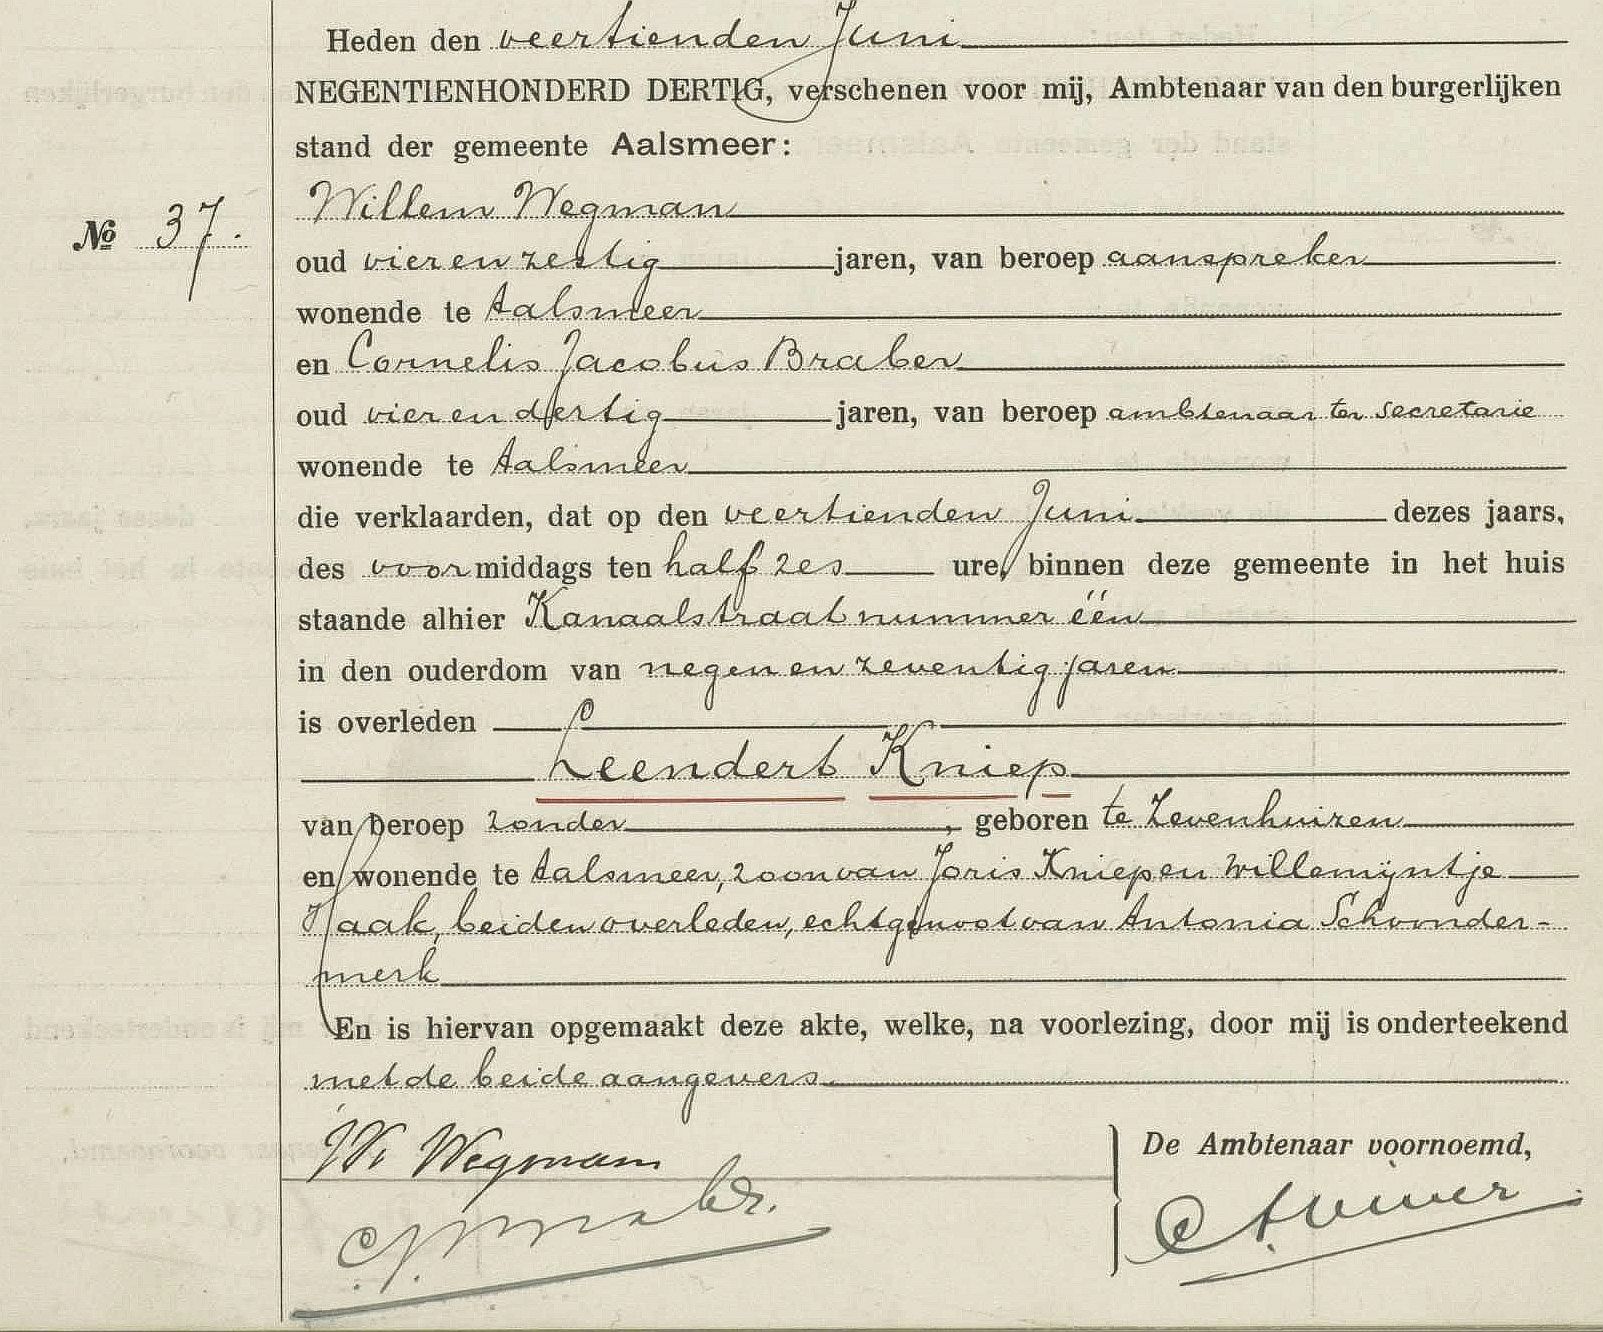 Heden den veertienden Juni
NEGENTIENHONDERD DERTIG, verschenen voor mij, Ambtenaar van den burgerlijken
stand der gemeente Aalsmeer:
Willem Wegman
№ 37.
oud vier en zestig jaren, van beroep aanspreker
wonende te Aalsmeer
en Cornelis Jacobus Braber
oud vier en dertig jaren, van beroep ambtenaar ter secretarie
wonende te Aalsmeer
die verklaarden, dat op den veertienden Juni dezes jaars,
des voormiddags ten half zes ure, binnen deze gemeente in het huis
staande alhier Kanaalstraat nummer één
in den ouderdom van negen en zeventig jaren
is overleden
Leendert Kniep
van beroep zonder, geboren te Zevenhuizen
en wonende te Aalsmeer, zoon van Joris Kniep en Willemijntje
Haak, beiden overleden, echtgenoot van Antonia Schoonder-
merk
En is hiervan opgemaakt deze akte, welke, na voorlezing, door mij is onderteekend
met de beide aangevers
W Wegman
De Ambtenaar voornoemd,
C J Braber.